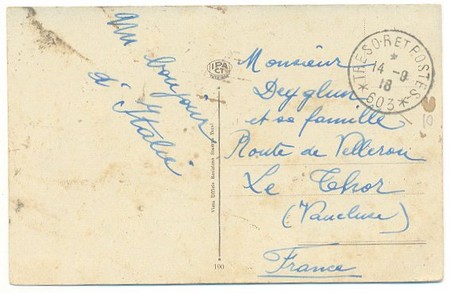 un bonjour
d'Italie
Monsieur
Deyglun
et sa famille
Route de Velleron
Le Thor
(Vaucluse)
France
* TRESOR ET POSTES *
*
14 - 9
18
603
IPA
CT
100